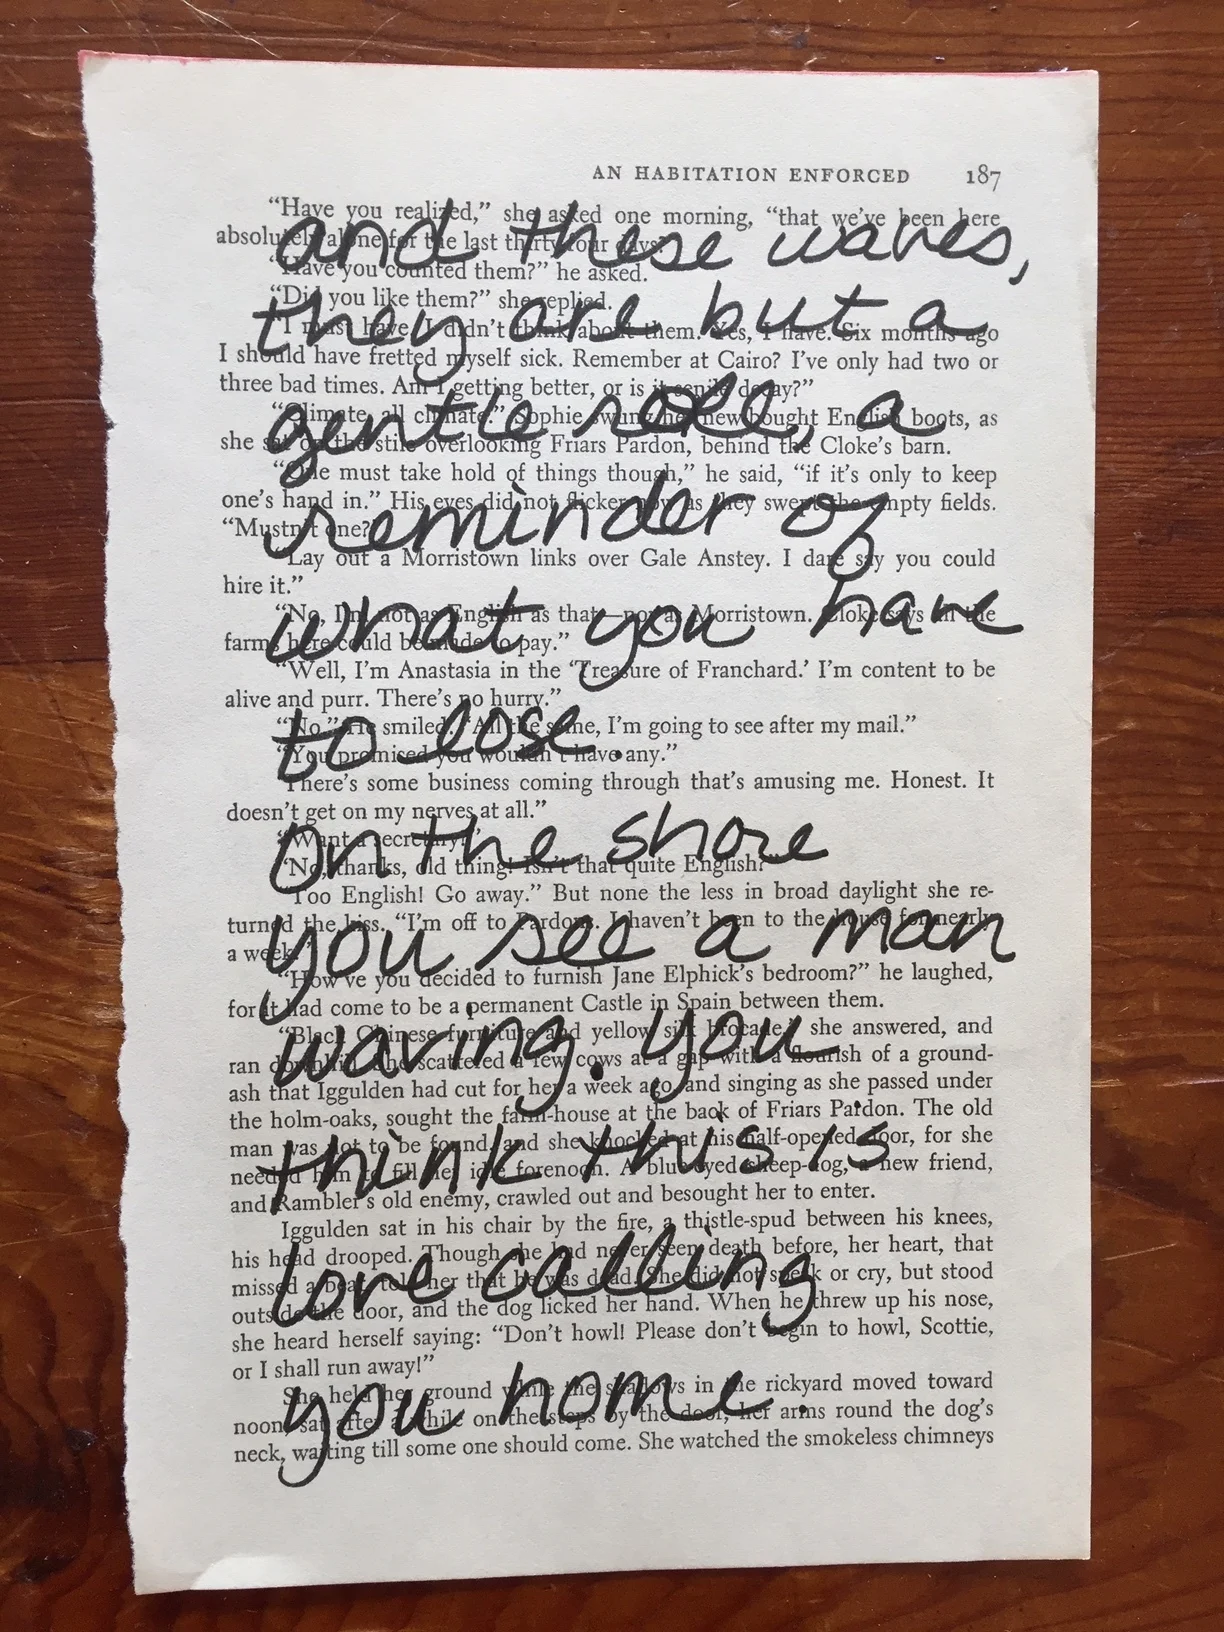 AN HABITATION ENFORCED 187
“Have you realized,” she asked one morning, “that we’ve been here
absolutely alone for the last thirty-four days?”
“Have you counted them?” he asked.
“Did you like them?” she replied.
“I must have. I didn’t think about them. Yes, I have. Six months ago
I should have fretted myself sick. Remember at Cairo? I’ve only had two or
three bad times. Am I getting better, or is it senile decay?”
“Climate, all climate.” Sophie swung her new-bought English boots, as
she sat on the stile overlooking Friars Pardon, behind the Cloke’s barn.
“One must take hold of things though,” he said, “if it’s only to keep
one’s hand in.” His eyes did not flicker now as they swept the empty fields.
“Mustn’t one?”
“Lay out a Morristown links over Gale Anstey. I dare say you could
hire it.”
“No, I’m not as English as that—nor as Morristown. Cloke says all the
farms here could be made to pay.”
“Well, I’m Anastasia in the ‘Treasure of Franchard.’ I’m content to be
alive and purr. There’s no hurry.”
“No.” He smiled. “All the same, I’m going to see after my mail.”
“You promised you wouldn’t have any.”
“There’s some business coming through that’s amusing me. Honest. It
doesn’t get on my nerves at all.”
“Want a secretary?”
“No, thanks, old thing! Isn’t that quite English?”
“Too English! Go away.” But none the less in broad daylight she re-
turned the kiss. “I’m off to Pardons. I haven’t been to the house for nearly
a week.”
“How’ve you decided to furnish Jane Elphick’s bedroom?” he laughed,
for it had come to be a permanent Castle in Spain between them.
“Black Chinese furniture and yellow silk brocade,” she answered, and
ran downhill. She scattered a few cows at a gap with a flourish of a ground-
ash that Iggulden had cut for her a week ago, and singing as she passed under
the holm-oaks, sought the farm-house at the back of Friars Pardon. The old
man was not to be found, and she knocked at his half-opened door, for she
needed him to fill her idle forenoon. A blue-eyed sheep-dog, a new friend,
and Rambler’s old enemy, crawled out and besought her to enter.
Iggulden sat in his chair by the fire, a thistle-spud between his knees,
his head drooped. Though she had never seen death before, her heart, that
missed a beat, told her that he was dead. She did not speak or cry, but stood
outside the door, and the dog licked her hand. When he threw up his nose,
she heard herself saying: “Don’t howl! Please don’t begin to howl, Scottie,
or I shall run away!”
She held her ground while the shadows in the rickyard moved toward
noon; sat after a while on the steps by the door, her arms round the dog’s
neck, waiting till some one should come. She watched the smokeless chimneys
and these waves,
they are but a
gentle roll, a
reminder of
what you have
to lose.
on the shore
you see a man
waving. you
think this is
love calling
you home.